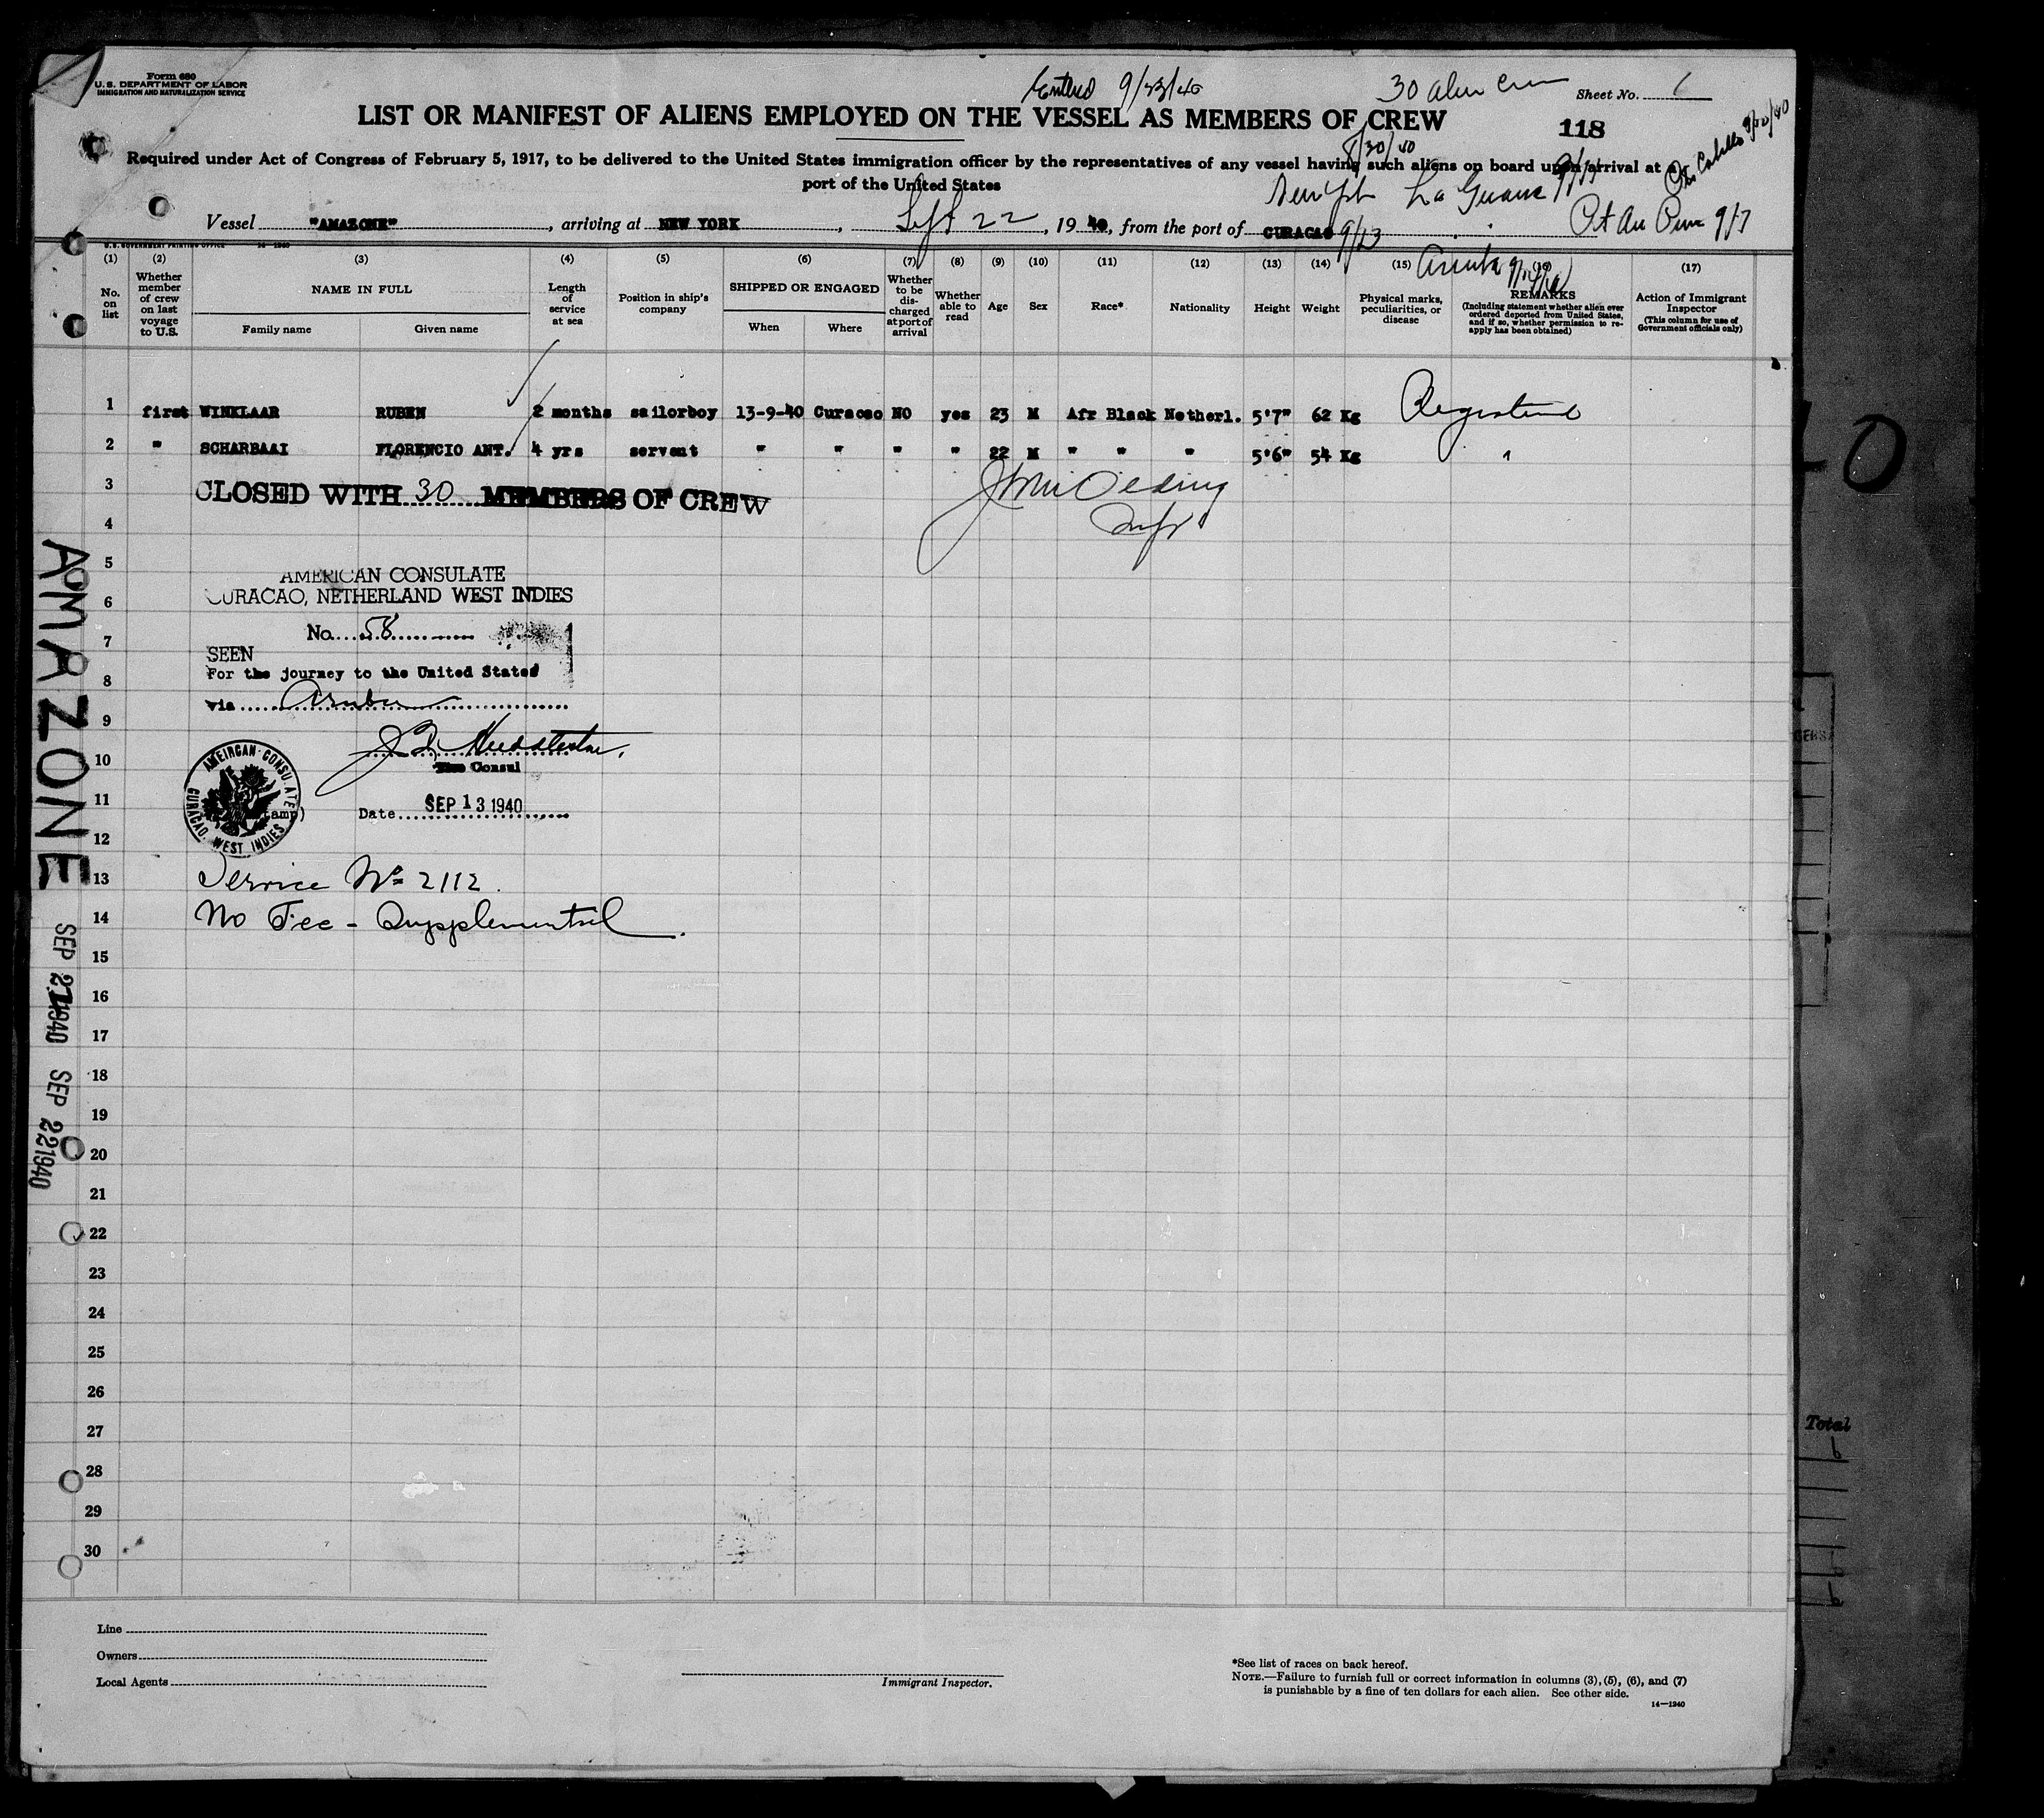 Form 680
U.S. DEPARTMENT OF LABOR
IMMIGRATION AND NATURALIZATION SERVICE
Entered 9/23/40
30 alien crew
Sheet No. 1
LIST OR MANIFEST OF ALIENS EMPLOYED ON THE VESSEL AS MEMBERS OF CREW
118
8/30/40
Required under Act of Congress of February 5, 1917, to be delivered to the United States immigration officer by the representatives of any vessel having such aliens on board upon arrival at a
port of the United States
La Guaira
Vessel "AMAZONE", arriving at NEW YORK, Sept 22, 1940, from the port of CURACAO 9/13
Pt Au Prin 9/7
U.S. GOVERNMENT PRINTING OFFICE 14—1940
Aruba
(1) (2) (3) (4) (5) (6) (7) (8) (9) (10) (11) (12) (13) (14) (15) (16) (17)
No. on list
Whether member of crew on last voyage to U.S.
NAME IN FULL
Family name
Given name
Length of service at sea
Position in ship's company
SHIPPED OR ENGAGED
When
Where
Whether to be discharged at port of arrival
Whether able to read
Age
Sex
Race*
Nationality
Height
Weight
Physical marks, peculiarities, or disease
REMARKS
(Including statement whether alien ever ordered deported from United States, and if so, whether permission to re-apply has been obtained)
Action of Immigrant Inspector
(This column for use of Government officials only)
1 first WINKLAAR RUBEN 2 months sailorboy 13-9-40 Curacao NO yes 23 M Afr Black Netherl. 5'7" 62 Kg Registered
2 " SCHARBAAI FLORENCIO ANT. 4 yrs servant " " " " 22 M " " " 5'6" 54 Kg "
3 CLOSED WITH 30 MEMBERS OF CREW
4
5
AMERICAN CONSULATE
6 CURACAO, NETHERLAND WEST INDIES
No. 58
7
SEEN
For the journey to the United States
8
via Aruba
9
10
Vice Consul
11
Date SEP 13 1940
AMEIRCAN CONSULATE
CURACAO, WEST INDIES
12
13 Service No 2112.
14 No Fee - Supplemental.
15
16
17
18
19
20
21
22
23
24
25
26
27
28
29
30
AMAZONE
SEP 22 1940
Line
Owners
Local Agents
Immigrant Inspector.
*See list of races on back hereof.
NOTE.—Failure to furnish full or correct information in columns (3), (5), (6), and (7)
is punishable by a fine of ten dollars for each alien. See other side.
14—1940
Total